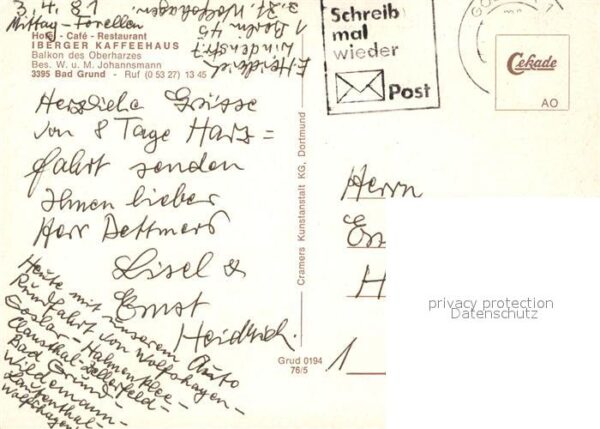 3.4.81
Mittag-Forellen
Hotel - Café - Restaurant
IBERGER KAFFEEHAUS
Balkon des Oberharzes
Bes. W. u. M. Johannsmann
3395 Bad Grund - Ruf (0 53 27) 13 45
E. Heidrich
Lindenstr. 7
1 Berlin 45
z. Zt. Wolfshagen
Herzliche Grüsse
von 8 Tage Harz=
fahrt senden
Ihnen lieber
Herr Dettmers
Lisel &
Ernst
Heidrich.
Heute mit unserem Auto
Rundfahrt von Wolfshagen-
Goslar-Hahnenklee-
Clausthal-Zellerfeld-
Bad Grund-
Wildemann-
Lautenthal-
Wolfshagen
Cramers Kunstanstalt KG, Dortmund
Grud 0194
76/5
Schreib
mal
wieder
Post
Cekade
AO
Herrn
1
privacy protection
Datenschutz